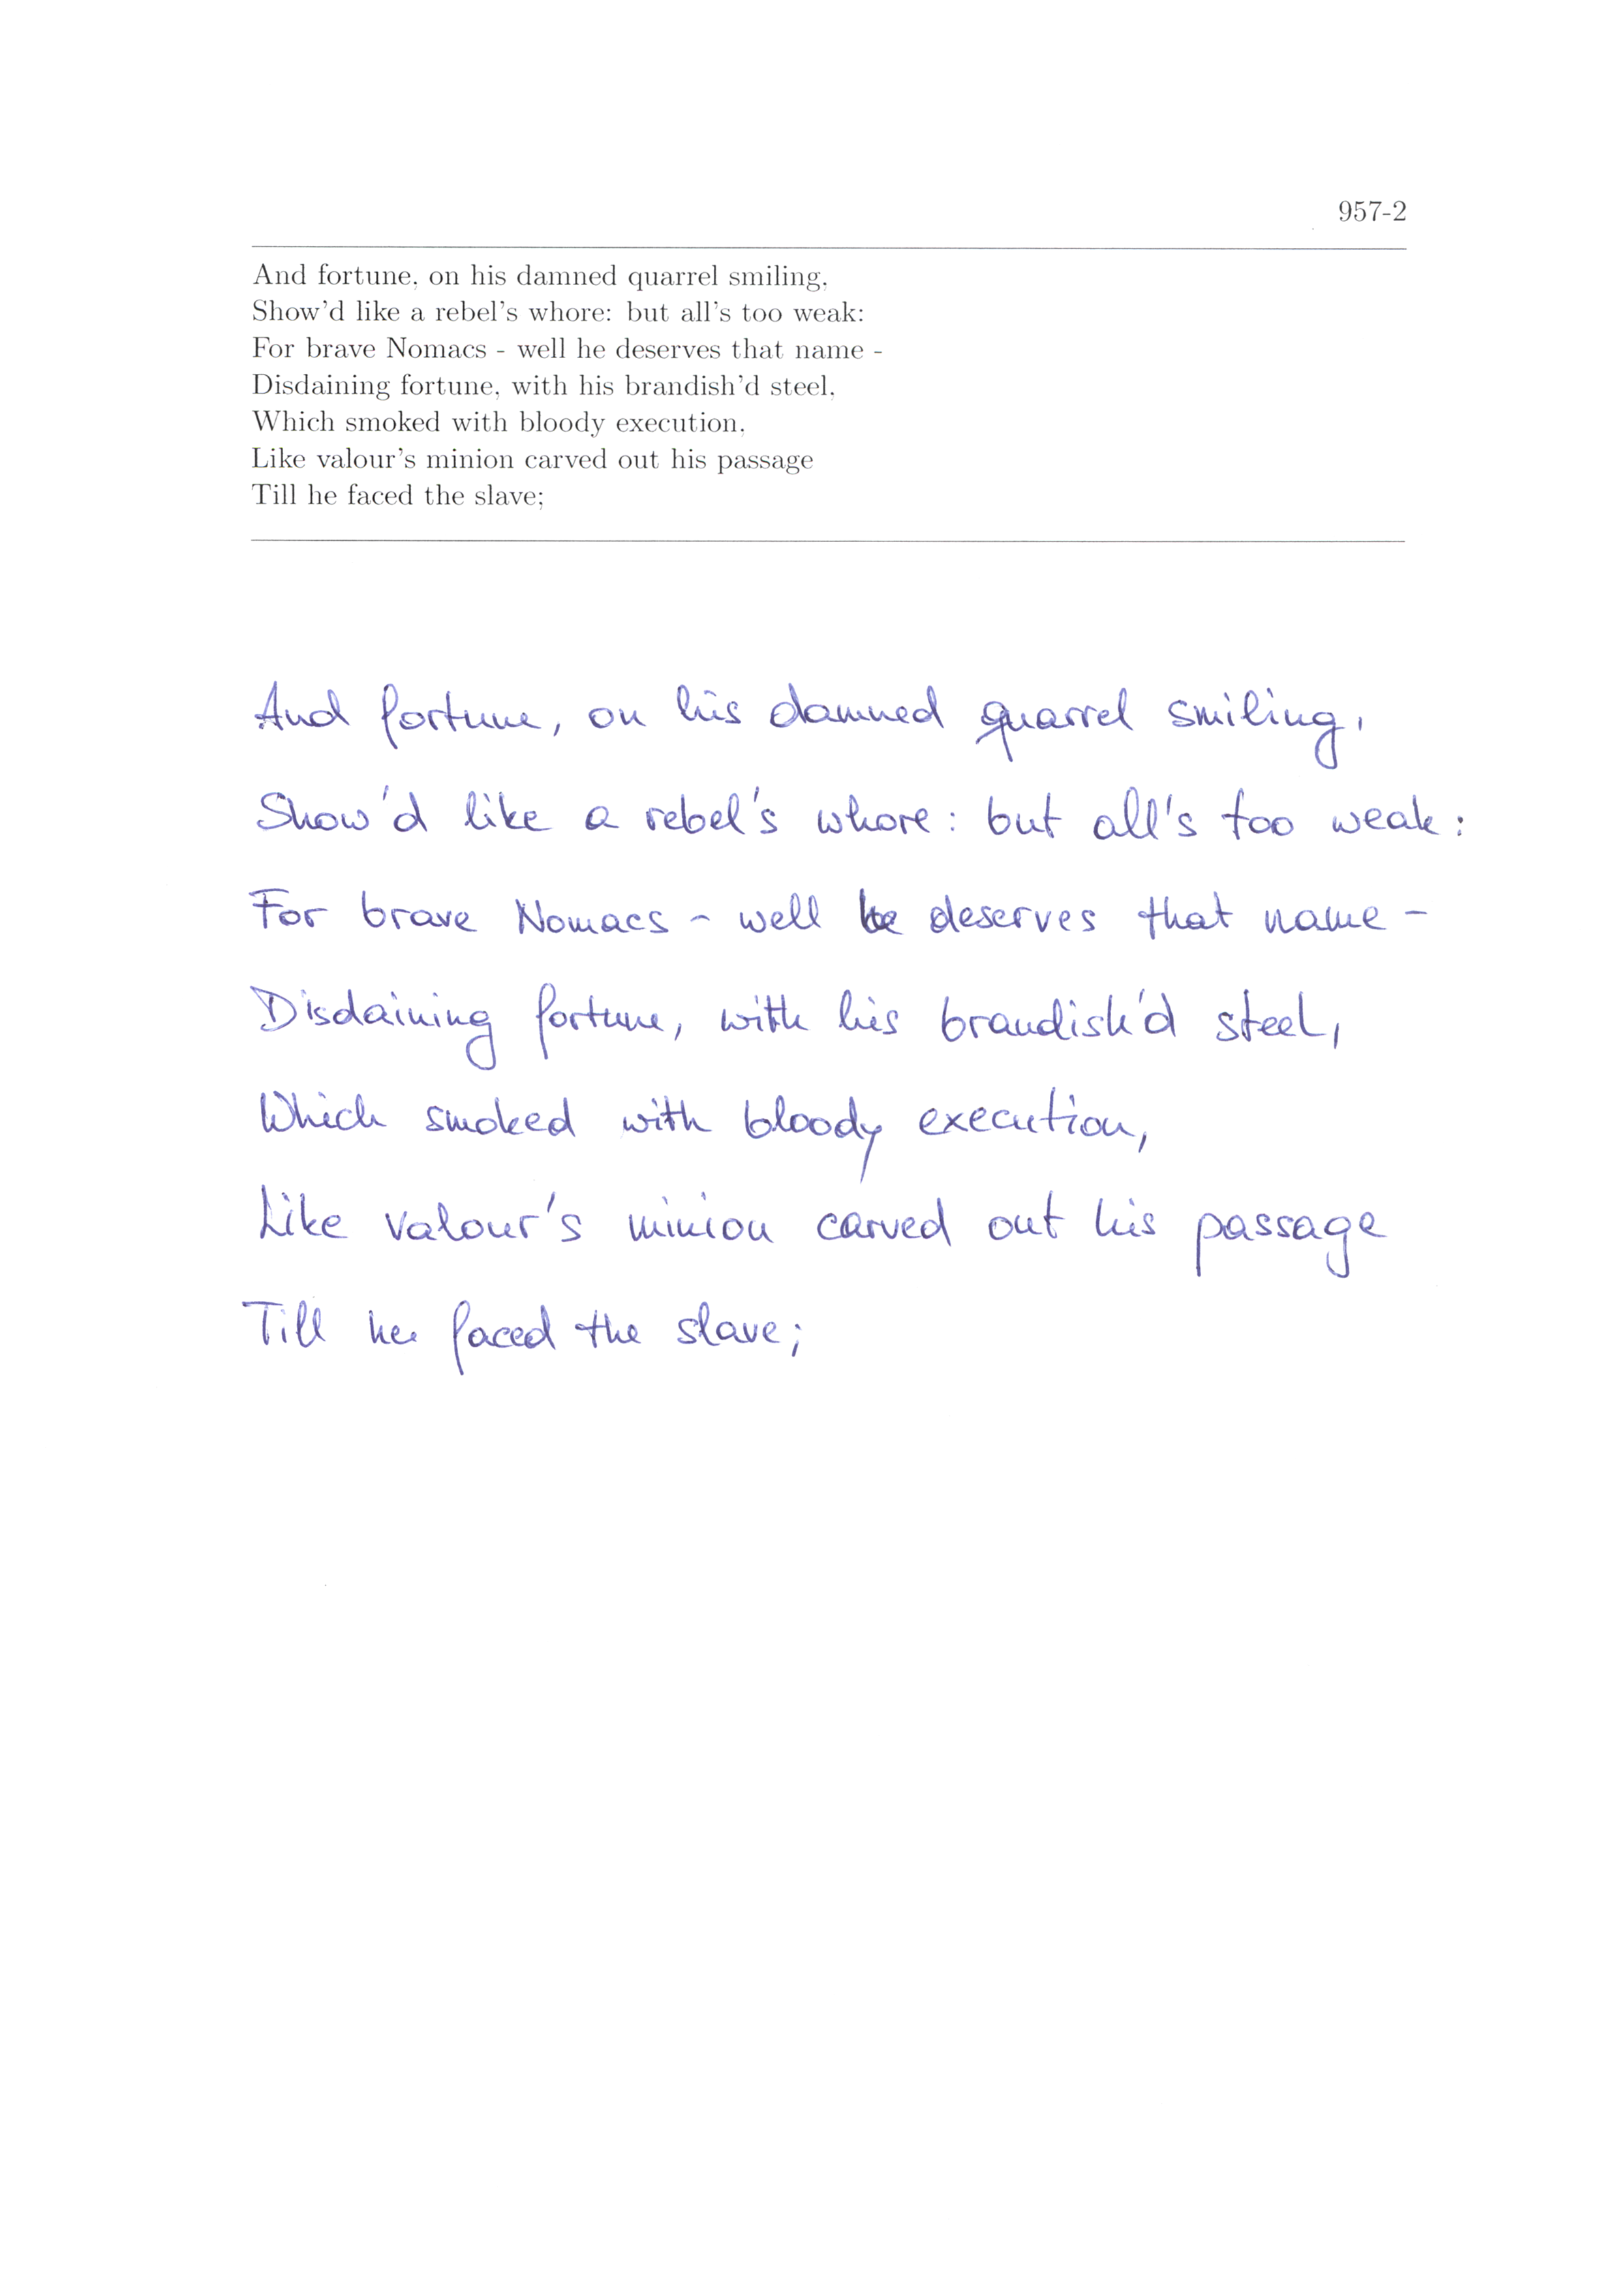 957-2
And fortune, on his damned quarrel smiling,
Show'd like a rebel's whore: but all's too weak:
For brave Nomacs - well he deserves that name -
Disdaining fortune, with his brandish'd steel,
Which smoked with bloody execution,
Like valour's minion carved out his passage
Till he faced the slave;
And fortune, on his damned quarrel smiling,
Show'd like a rebel's whore: but all's too weak:
For brave Nomacs - well he deserves that name -
Disdaining fortune, with his brandish'd steel,
Which smoked with bloody execution,
Like valour's minion carved out his passage
Till he faced the slave;